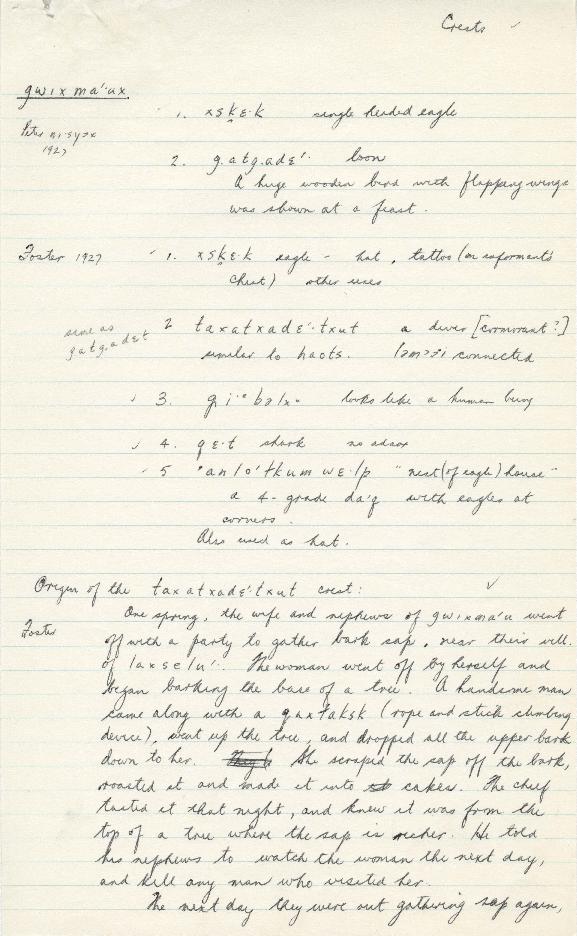 Crests ✓
gwıxma'·ux
Peter nisyɔx
1927
1. xsḳɛ·k single headed eagle
2. g.atg.adɛ'· loon
A huge wooden bird with flapping wings
was shown at a feast.
Foster 1927
1. xsḳɛ·k eagle - hat, tattoo (on informant's
chest) other uses
same as
gatg.adɛt
2 taxatxadɛ'·txut a diver [cormorant?]
similar to haots. connected
✓ 3. looks like a human being
✓ 4. qɛ·t shark no adaox
5 'anlo'tkum wɛ·lp "nest (of eagle) house"
a 4-grade da'q with eagles at
corners.
Also used as hat.
Origin of the taxatxadɛ'·txut crest: ✓
Foster
One spring, the wife and nephews of gwıxma'u went
off with a party to gather bark sap, near their vill.
of laxsɛlu'·. The woman went off by herself and
began barking the base of a tree. A handsome man
came along with a gaxtaksk (rope and stick climbing
device), went up the tree, and dropped all the upper bark
down to her. She scraped the sap off the bark,
roasted it and made it into cakes. The chief
tasted it that night, and knew it was from the
top of a tree where the sap is richer. He told
his nephews to watch the woman the next day,
and kill any man who visited her.
The next day they were out gathering sap again,